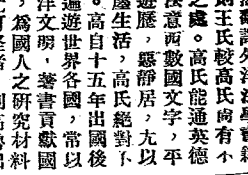 則王氏較高氏尚有小
之處。高氏能通英德
法意西數國文字,平
遊歷,惡靜居,尤以
塵生活,高氏絕對不
。高自十五年出國後
遍遊世界各國,常以
洋文明,著書貢獻國
,爲國人之研究材料